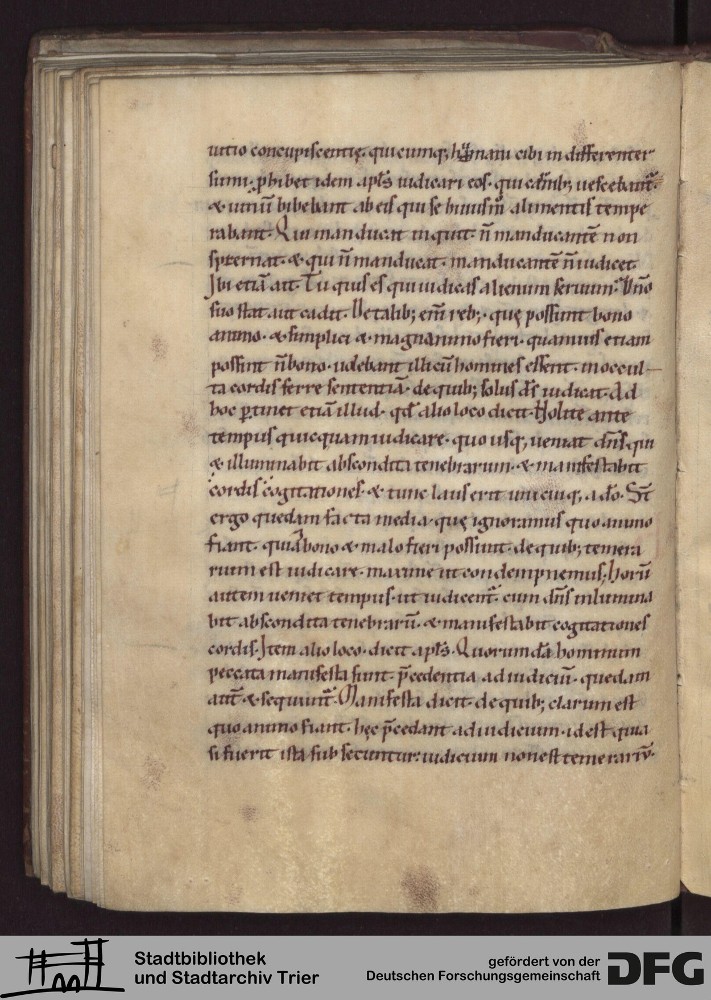 uitio concupiscentię. quicumq; humani cibi indifferenter
sumi. ꝓhibet idem apl̄s iudicari eos. qui eis̄
& uinū bibebant ab eis qui se huiusm̄ alimentis tempe
rabant. Qui manducat inquit. n̄ manducantē non
spternat. & qui n̄ manducat. manducantē n̄ iudicet.
Ibi etiā ait. Tu quis es qui iudicas alienum seruum? Dn̄o
suo stat aut cadit. De talib; em̄ reb;. quę possunt bono
animo. & simplici & magnanimo fieri. quamuis etiam
possint n̄ bono. uolebant illi cū homines essent. in occul
ta cordis ferre sententiā. de quib; solus d̄s iudicat. Ad
hoc ꝑtinet etiā illud. qd̄ alio loco dicit. Nolite ante
tempus quicquam iudicare. quo usq; ueniat dn̄s. qui
& illuminabit abscondita tenebrarum. & manifestabit
cordis cogitationes. & tunc laus erit unicuiq; a dō. St̄
ergo quedam facta media. quę ignoramus quo animo
fiant. quia & bono & malo fieri possunt. de quib; temera
rium est iudicare. maxime ut condempnemus; Horū
autem ueniet tempus. ut iudicent̄. cum dn̄s inlumina
bit abscondita tenebrarū. & manifestabit cogitationes
cordis. Item alio loco. dicit apl̄s. Quorumdā hominum
peccata manifesta sunt. p̄cedentia ad iudiciū. quedam
aut̄ & sequunt̄. Manifesta dicit. de quib; clarum est
quo animo fiant. hęc p̄cedunt ad iudicium. id est quia
si fuerit ista subsecuntur. iudicium non est temerariū.
Stadtbibliothek
und Stadtarchiv Trier
gefördert von der
Deutschen Forschungsgemeinschaft
DFG